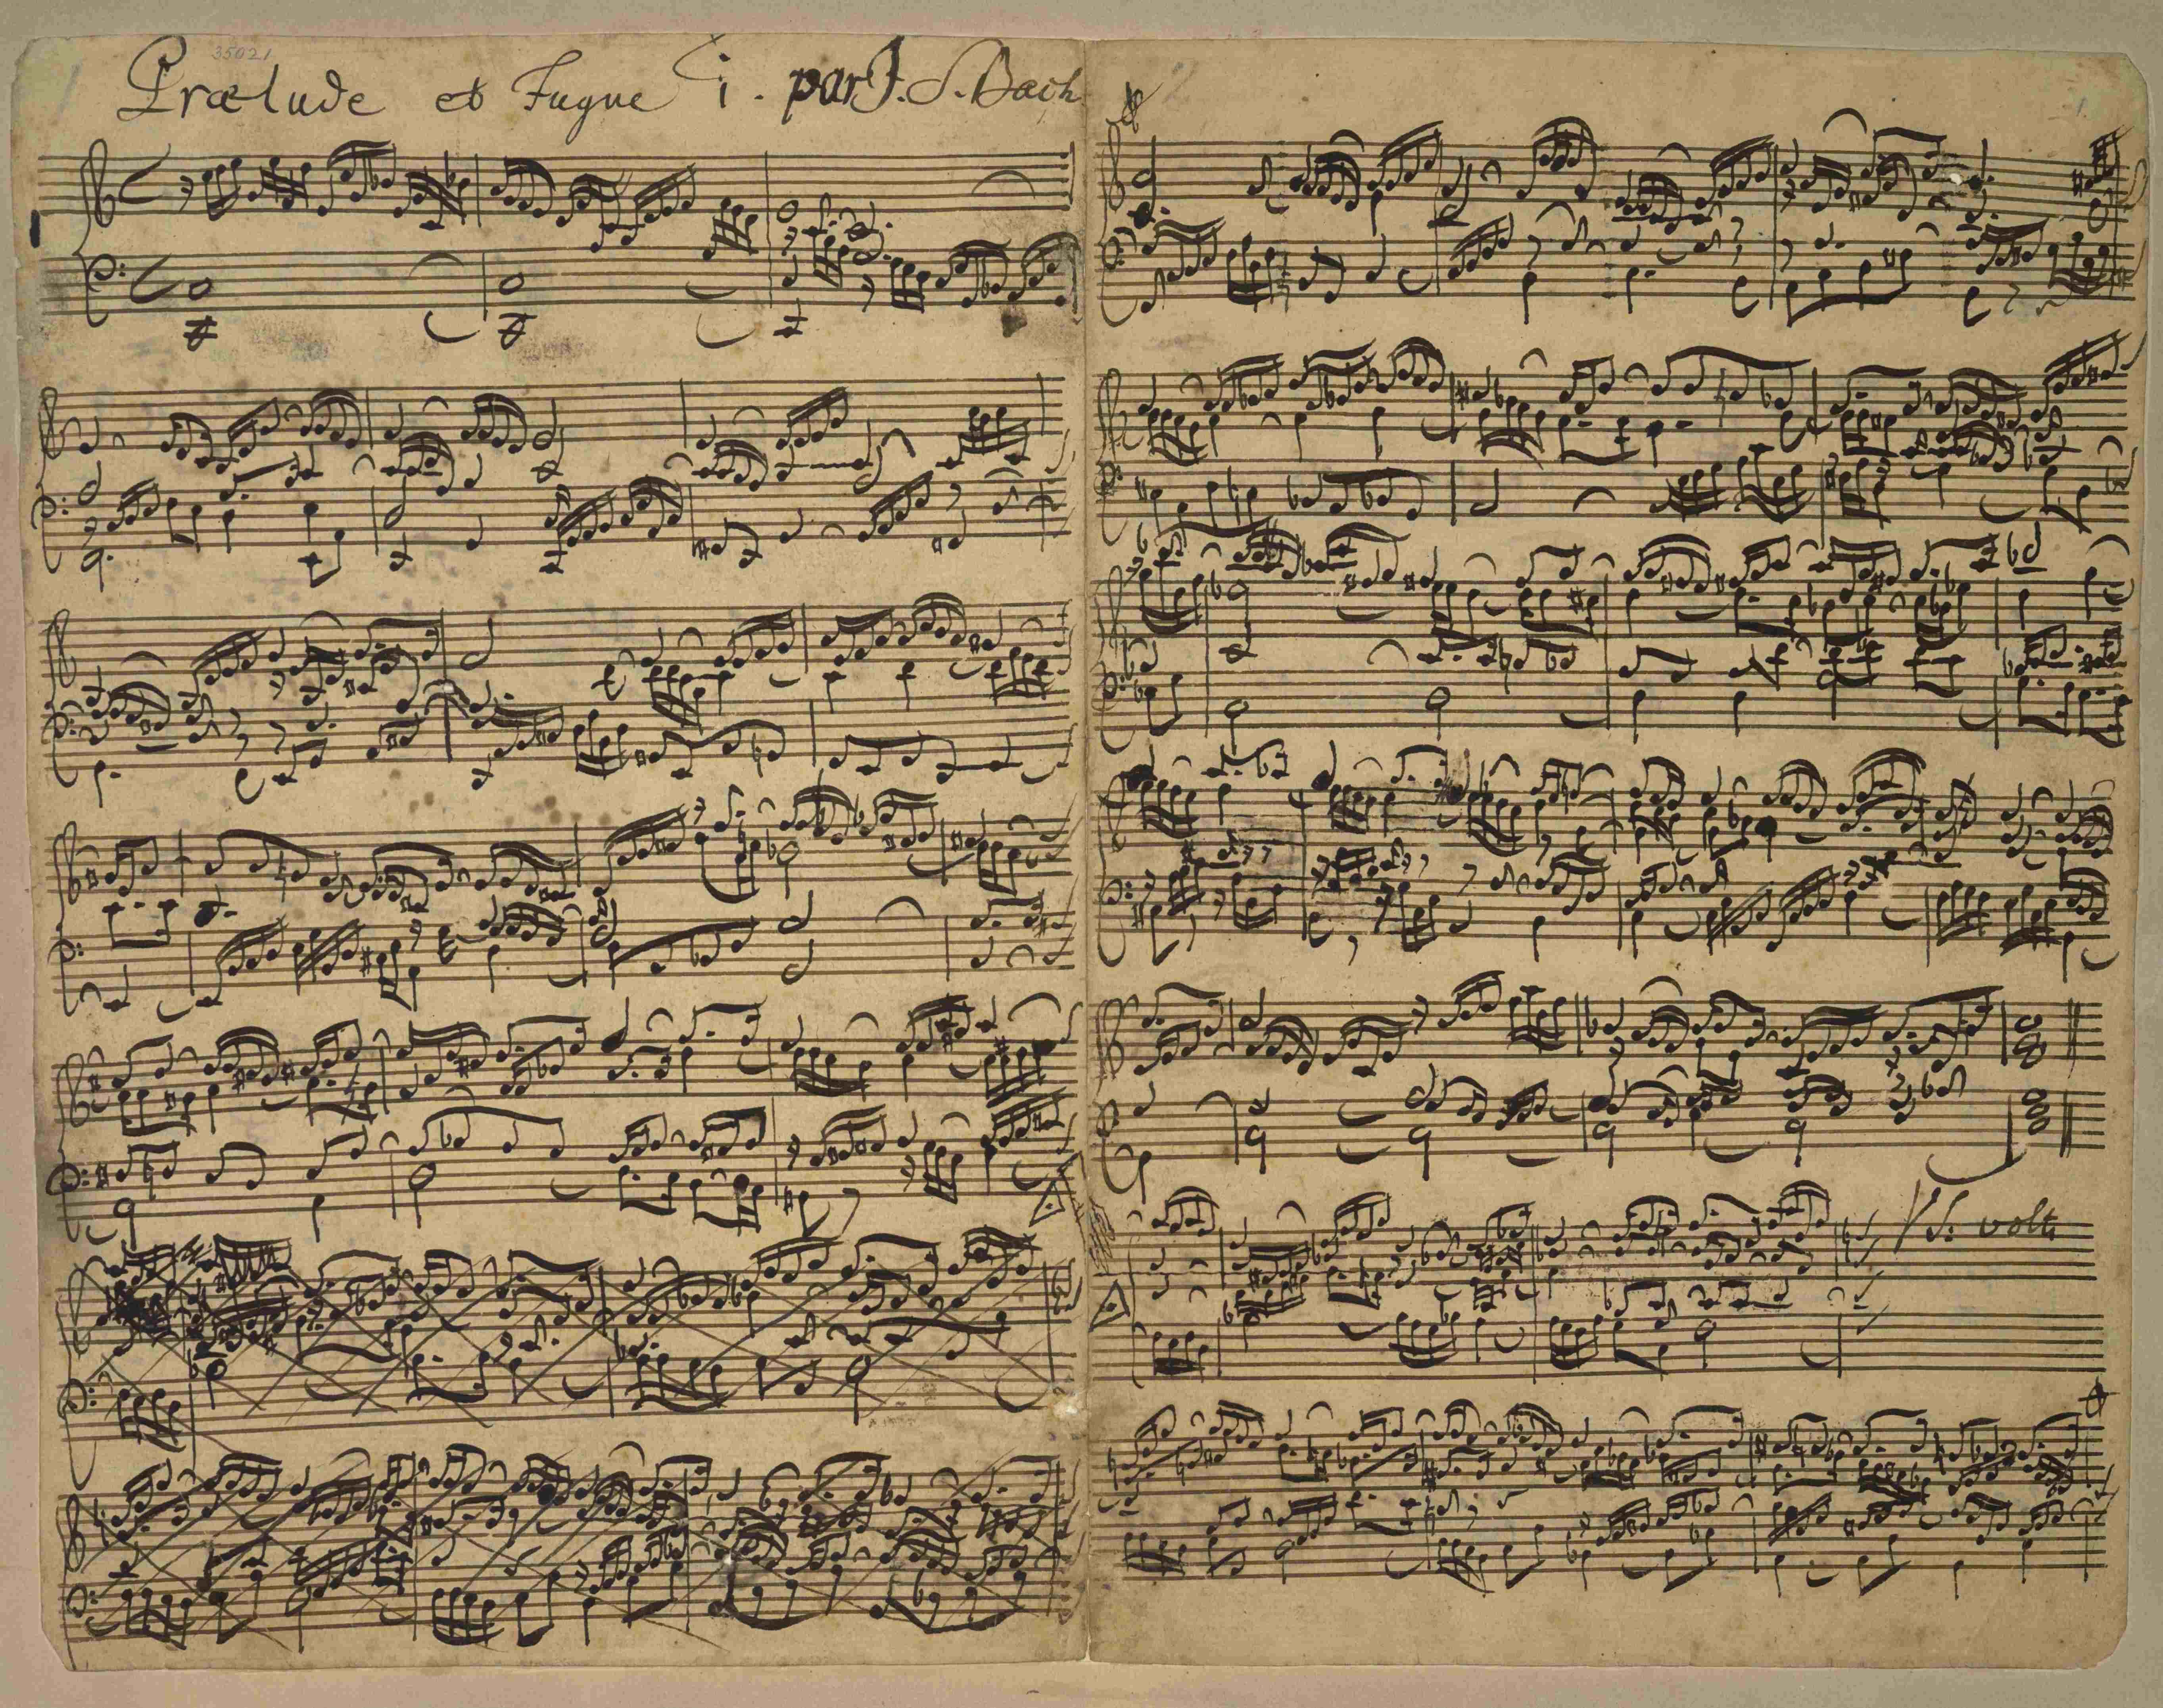 35021
Prælude et Fugue i. par J. S. Bach
1.
V. S. volti